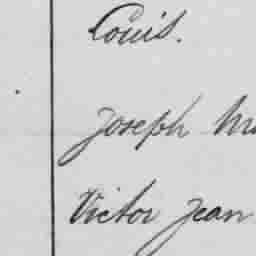 Louis.
Joseph
Victor Jean